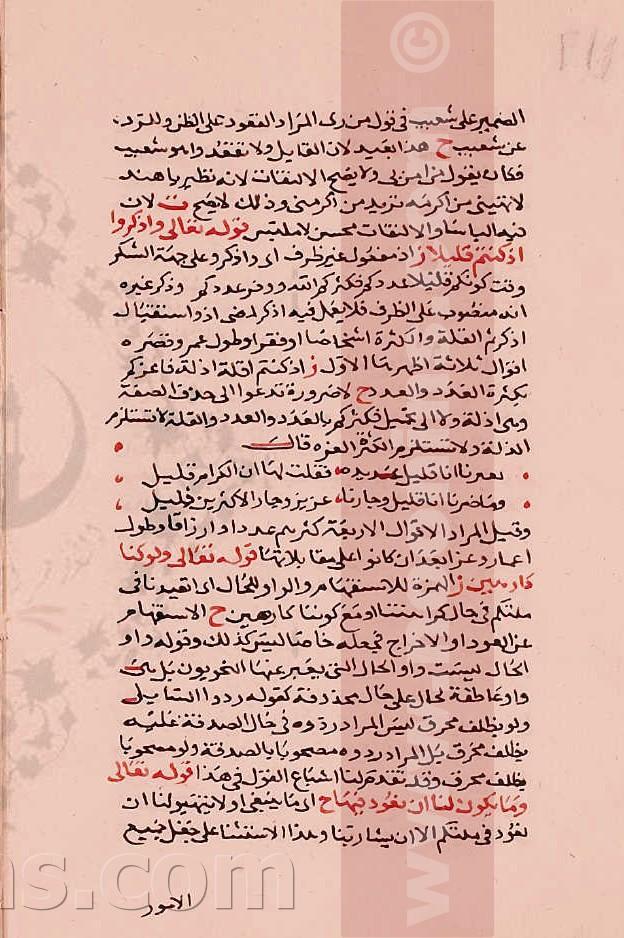 الضمير على شعيب في قول من رى المراد العقود على الظن وللرد
عن شعيب ح هذا بعيد لان القايل ولا نقعدوا هو شعيب
فكان يقول من امن بي ولا يصح الالتفات لانه نظير يا هند
لا تهيني من اكرمه تريد من اكرمني وذلك لا يصح ت لان
فيه الباسا والالتفات محسن لا ملبس قوله تعالى واذكروا
اذ كنتم قليلا ز اذ مفعول غير ظرف اى واذكروا على جهة الشكر
وقت كونكم قليلا عددكم فكثركم الله ووفر عددكم وذكر غيره
انه منصوب على الظرف فلا يعمل فيه اذكر لمضى اذ واستقبال
اذكر ثم القلة والكثرة اشخاصا او فقرا وطول عمر وقصره
اقوال ثلاثة اظهرها الاول ز اذ كنتم اقلة اذلة فاعزكم
بكثرة العدد والعدد ح لا ضرورة تدعوا الى حذف الصفة
وهى اذلة ولا الى تحميل فكثركم بالعدد والعدد والقلة لا تستلزم
الذلة ولا تستلزم الكثرة العزه قال
تعيرنا انا قليل عديده فقلت لها ان الكرام قليل
وما ضرنا انا قليل وجارنا عزيز وجار الاكثرين قليل
وقيل المراد الاقوال الاربعة كثرهم عددا وارزاقا وطول
اعمار وعزا بعد ان كانوا على مقابلاتها قوله تعالى ولو كنا
كارهين ز الهمزة للاستفهام والواو للحال اى اتعيدننا في
ملتكم في حال كراهتنا او مع كوننا كارهين ح الاستفهام
عن العود او الاخراج في جعله خاصا ليس كذلك وقوله واو
الحال ليست واو الحال التى يعبر عنها النحويون بل هى
واو عاطفة لحال على حال محذوفة كقوله ردوا السايل
ولو بظلف محرق ليس المراد ردوه في حال الصدقة عليه
بظلف محرق بل المراد ردوه مصحوبا بالصدقة ولو مصحوبا
بظلف محرق وقد تقدم لنا اشباع القول في هذا قوله تعالى
وما يكون لنا ان نعود فيها ح اى ما ينبغى او لا يتهيو لنا ان
نعود في ملتكم الا ان يشا ربنا وهذا الاستثنا على جعل جميع
الامور